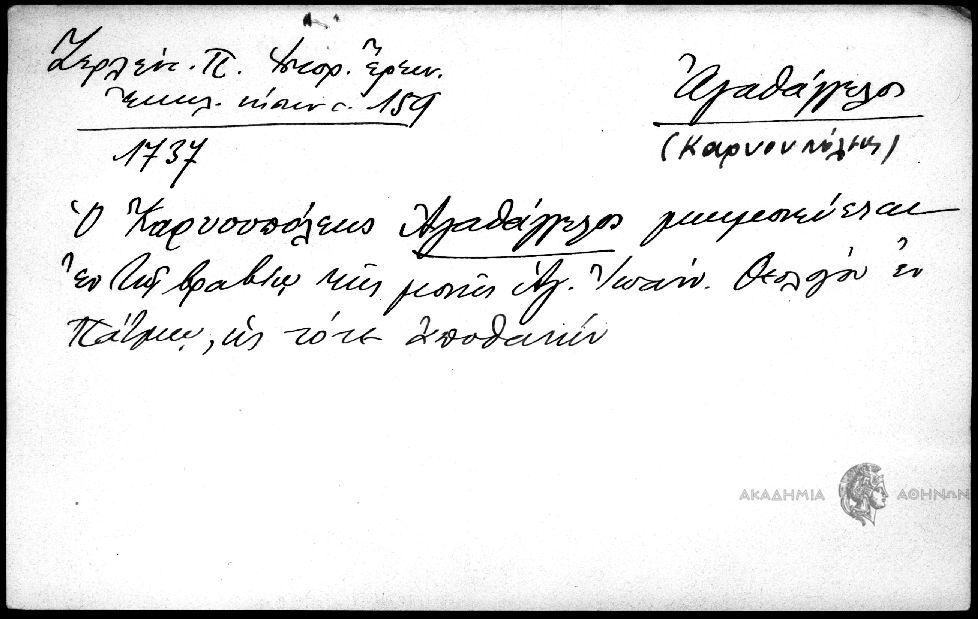 Ζερλέντ. Π. Ἱστορ. Ἔρευν.
Ἐκκλ. νήσων σ. 159
1737
Ἀγαθάγγελος
(Καρυουπόλεως)
Ὁ Καρυουπόλεως Ἀγαθάγγελος μνημονεύεται
ἐν τῷ βραβίῳ τῆς μονῆς Ἁγ. Ἰωάνν. Θεολόγου ἐν
Πάτμῳ, ὡς τότε ἀποθανών
ΑΚΑΔΗΜΙΑ ΑΘΗΝΩΝ